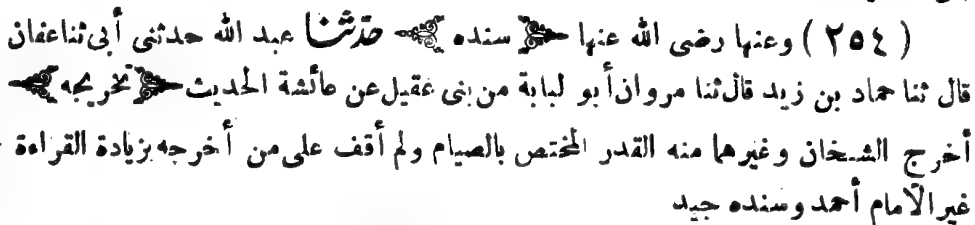 ( ٢٥٤ ) وعنها رضى الله عنها ﴿ سنده ﴾ حدثنا عبد الله حدثنى أبى ثنا عفان
قال ثنا حماد بن زيد قال ثنا مروان أبو لبابة من بنى عقيل عن عائشة الحديث ﴿ تخريجه ﴾
أخرج الشيخان وغيرهما منه القدر المختص بالصيام ولم أقف على من أخرجه بزيادة القراءة
غير الأمام أحمد وسنده جيد